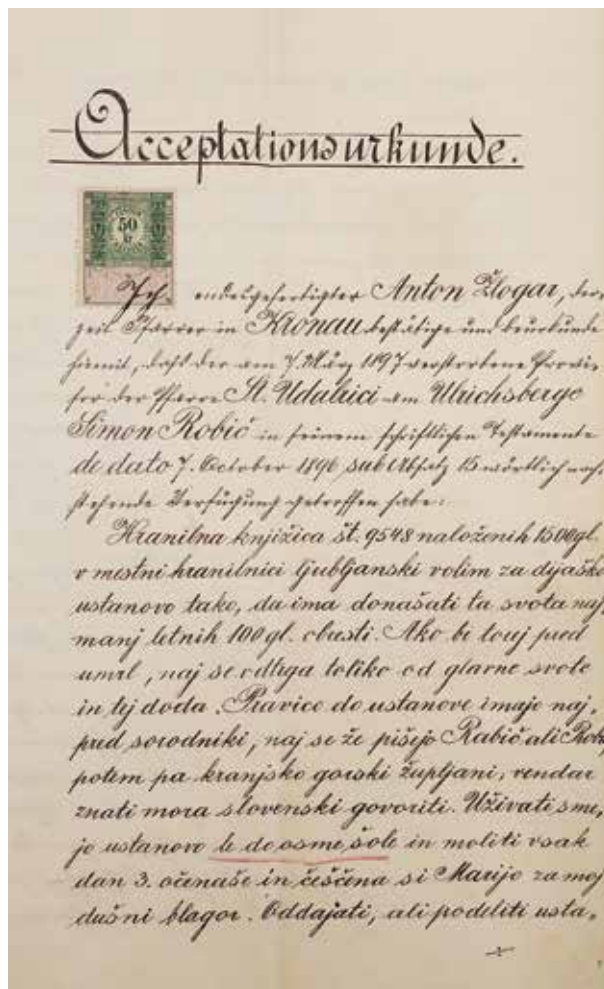 Acceptationsurkunde.
50
kr
Ich endesgefertigter Anton Žlogar, der-
zeit Pfarrer in Kronau bestätige und beurkunde
hiemit, daß der am 7. März 1897 verstorbene Provi-
sor der Pfarre St. Udalrici am Ulrichsberge
Simon Robič in seinem schriftlichen Testamente
de dato 7. October 1896 sub Absatz 15 wörtlich nach-
stehende Verfügung getroffen habe:
Hranilna knjižica št. 9548 naloženih 1500 gl.
v mestni hranilnici ljubljanski volim za dijaško
ustanovo tako, da ima donašati ta svota naj
manj letnih 100 gl. obresti. Ako bi
umrl, naj se odtrga toliko od glavne svote
in tej doda. Pravico do ustanove imajo naj-
pred sorodniki, naj se že pišejo Rabič ali
potem pa kranjsko gorski župljani, vendar
znati mora slovenski govoriti. Uživati sme-
jo ustanovo le do osme šole in moliti vsak
dan 3. očenaše in češčena si Marijo za moj
dušni blagor. Oddajati, ali podeliti usta-